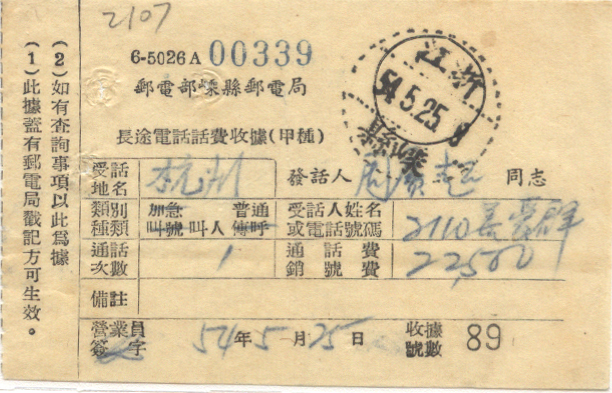 2107
6-5026A 00339
郵電部嵊縣郵電局
長途電話話費收據(甲種)
受話地名 杭州 發話人 同志
類別種類 加急 普通 叫號 叫人 傳呼 受話人姓名或電話號碼 2110
通話次數 1 通話費銷號費 22,500
備註
營業員簽字 54年5月25日 收據號數 89
(2)如有查詢事項以此為據
(1)此據蓋有郵電局戳記方可生效。
浙江
54.5.25. 8
嵊縣